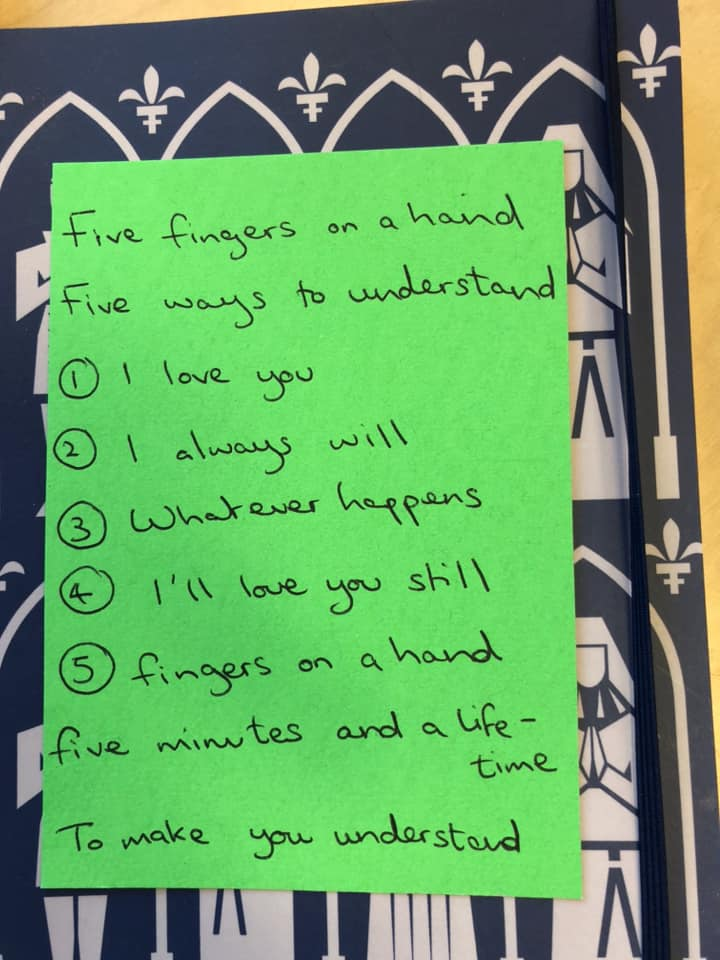 Five fingers on a hand
Five ways to understand
① I love you
② I always will
③ Whatever happens
④ I'll love you still
⑤ fingers on a hand
five minutes and a life-
time
To make you understand